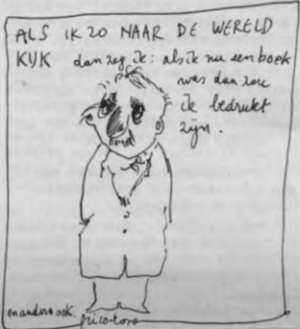 ALS IK ZO NAAR DE WERELD
KIJK dan zeg ik: als ik nu een boek
was dan zou
ik bedrukt
zijn.
en anders ook.